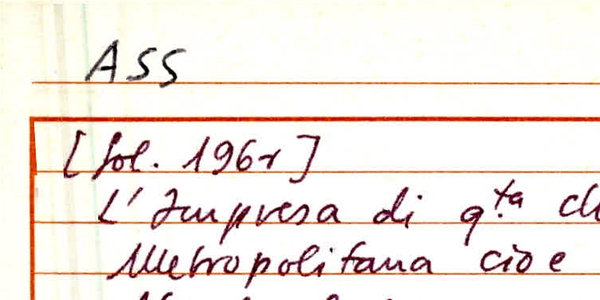 ASS
[fol. 196r]
L'Impresa di q.ta
Metropolitana cioe